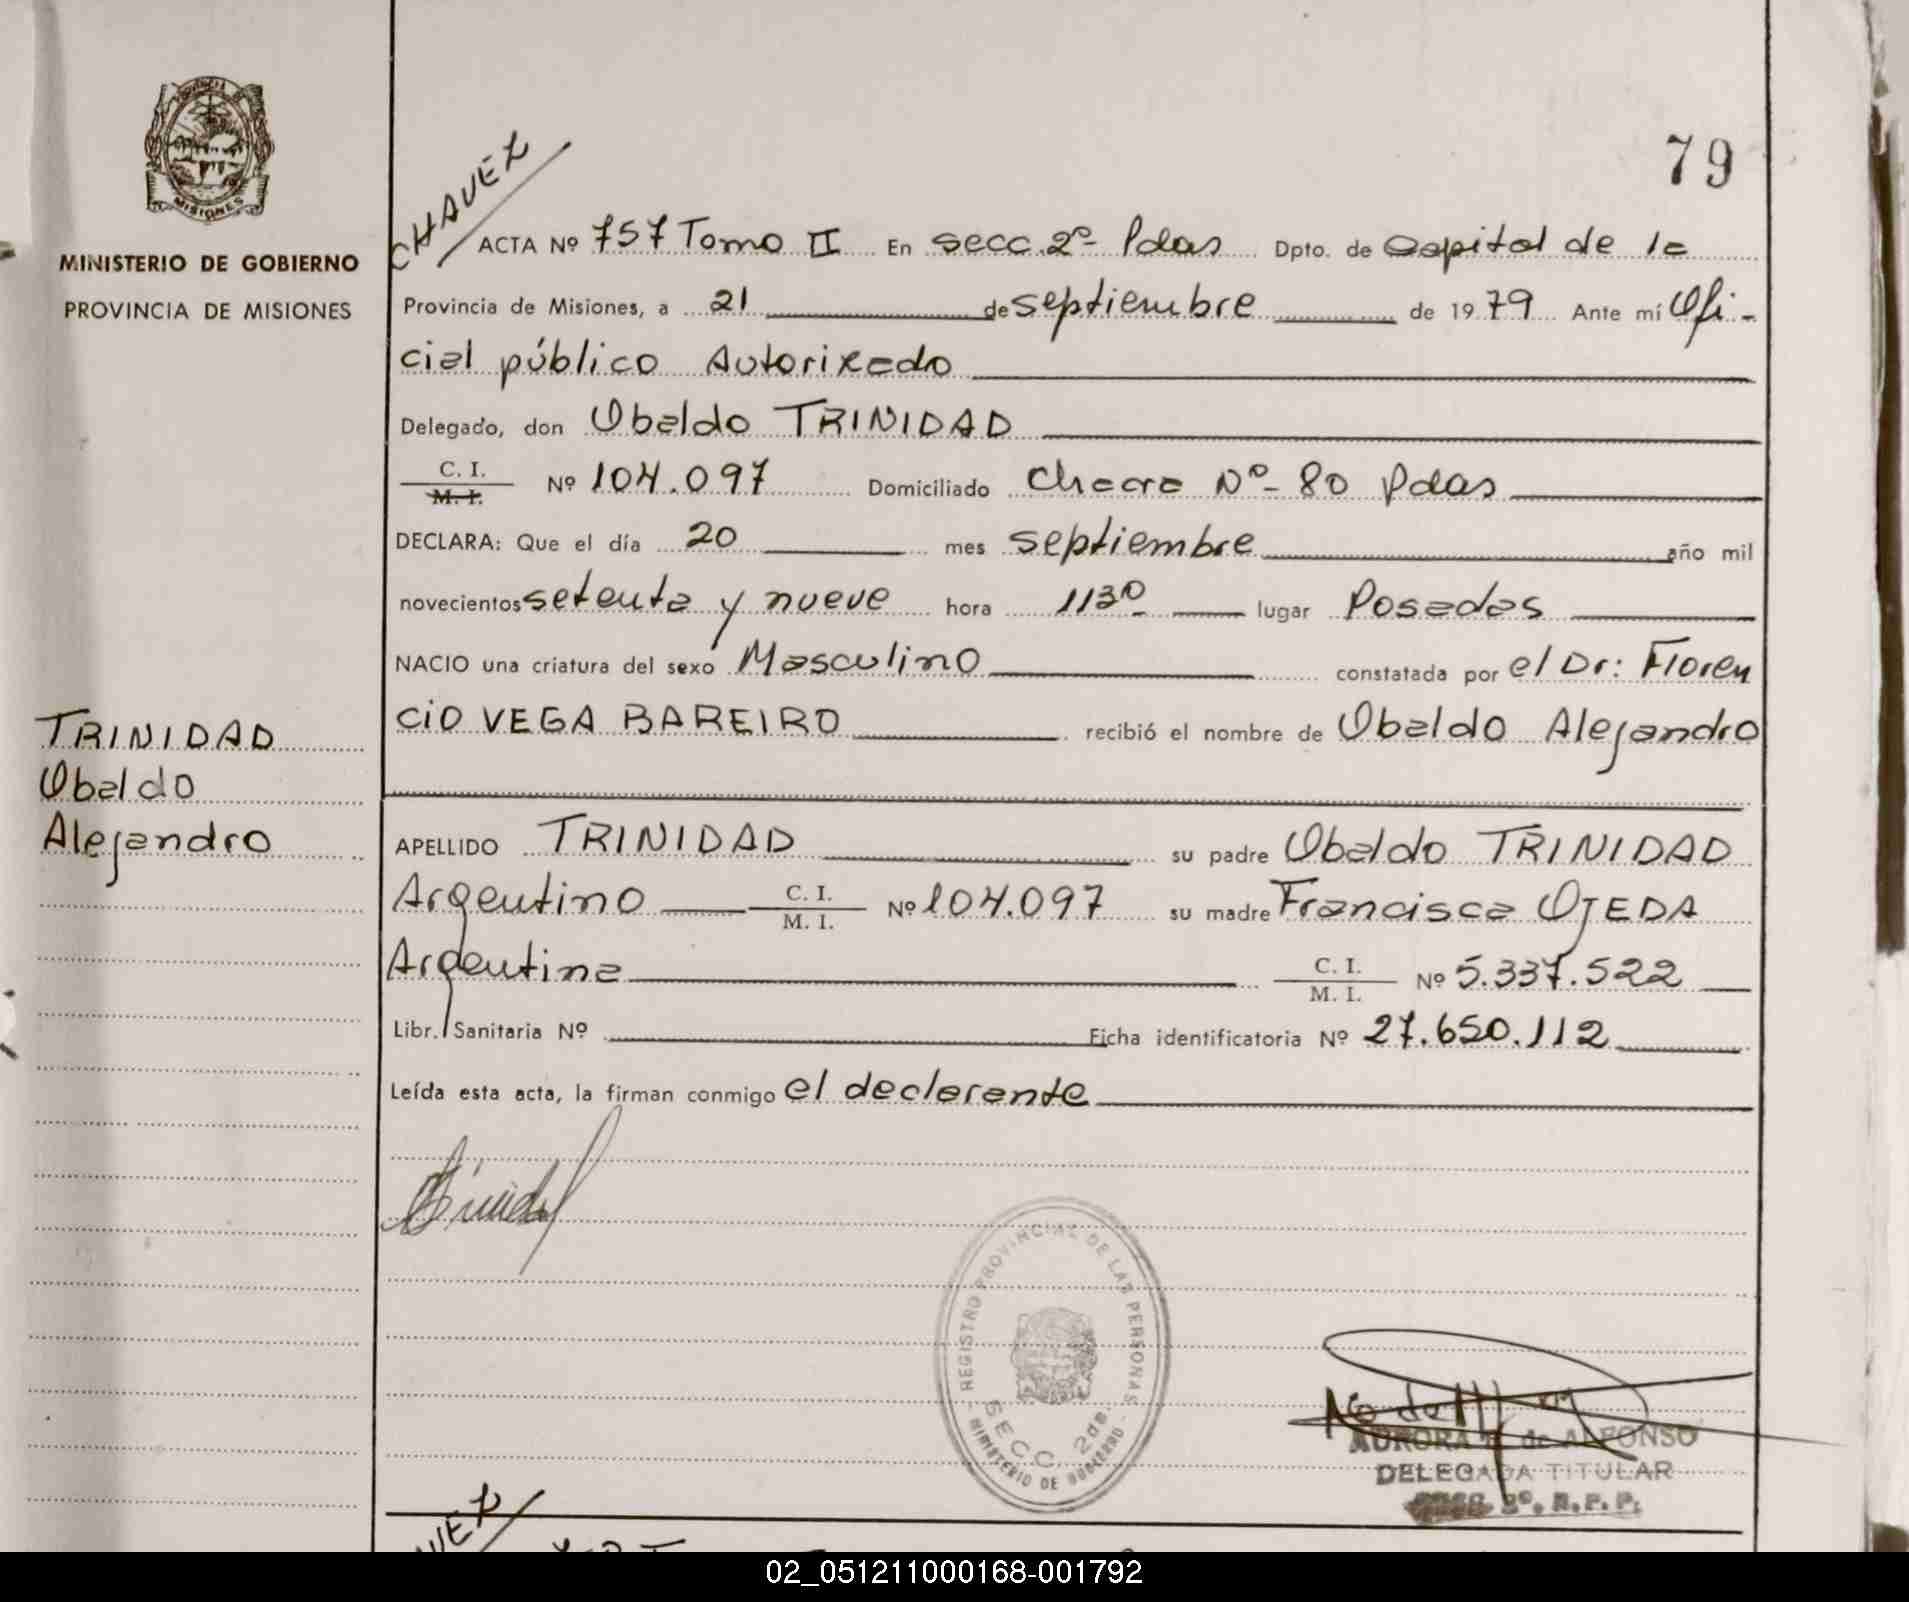 PROVINCIA DE
MISIONES
MINISTERIO DE GOBIERNO
PROVINCIA DE MISIONES
79
CHAVEZ
ACTA Nº 757 Tomo II En secc. 2º Pdas Dpto. de Capital de la
Provincia de Misiones, a 21 de septiembre de 1979 Ante mí Ofi-
cial público Autorizado
Delegado, don Ubaldo TRINIDAD
C. I.
M. I. Nº 104.097 Domiciliado Chacra Nº 80 Pdas
DECLARA: Que el día 20 mes septiembre año mil
novecientos setenta y nueve hora 1130 lugar Posadas
NACIO una criatura del sexo Masculino constatada por el Dr: Floren
cio VEGA BAREIRO recibió el nombre de Ubaldo Alejandro
TRINIDAD
Ubaldo
Alejandro
APELLIDO TRINIDAD su padre Ubaldo TRINIDAD
Argentino C. I.
M. I. Nº 104.097 su madre Francisca OJEDA
Argentina C. I.
M. I. Nº 5.337.522
Libr. Sanitaria Nº Ficha identificatoria Nº 27.650.112
Leída esta acta, la firman conmigo el declarante
REGISTRO PROVINCIAL DE LAS PERSONAS
SECC 2da.
MINISTERIO DE GOBIERNO
AURORA de ALFONSO
DELEGADA TITULAR
SECC. 2º. R. P. P.
02_051211000168-001792